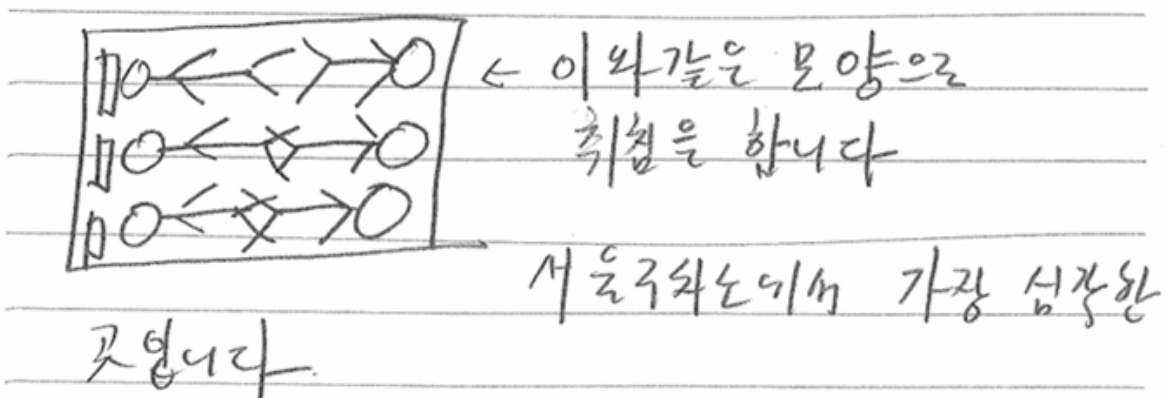 ← 이와같은 모양으로
취침을 합니다
서울구치소내에서 가장 심각한
곳입니다.